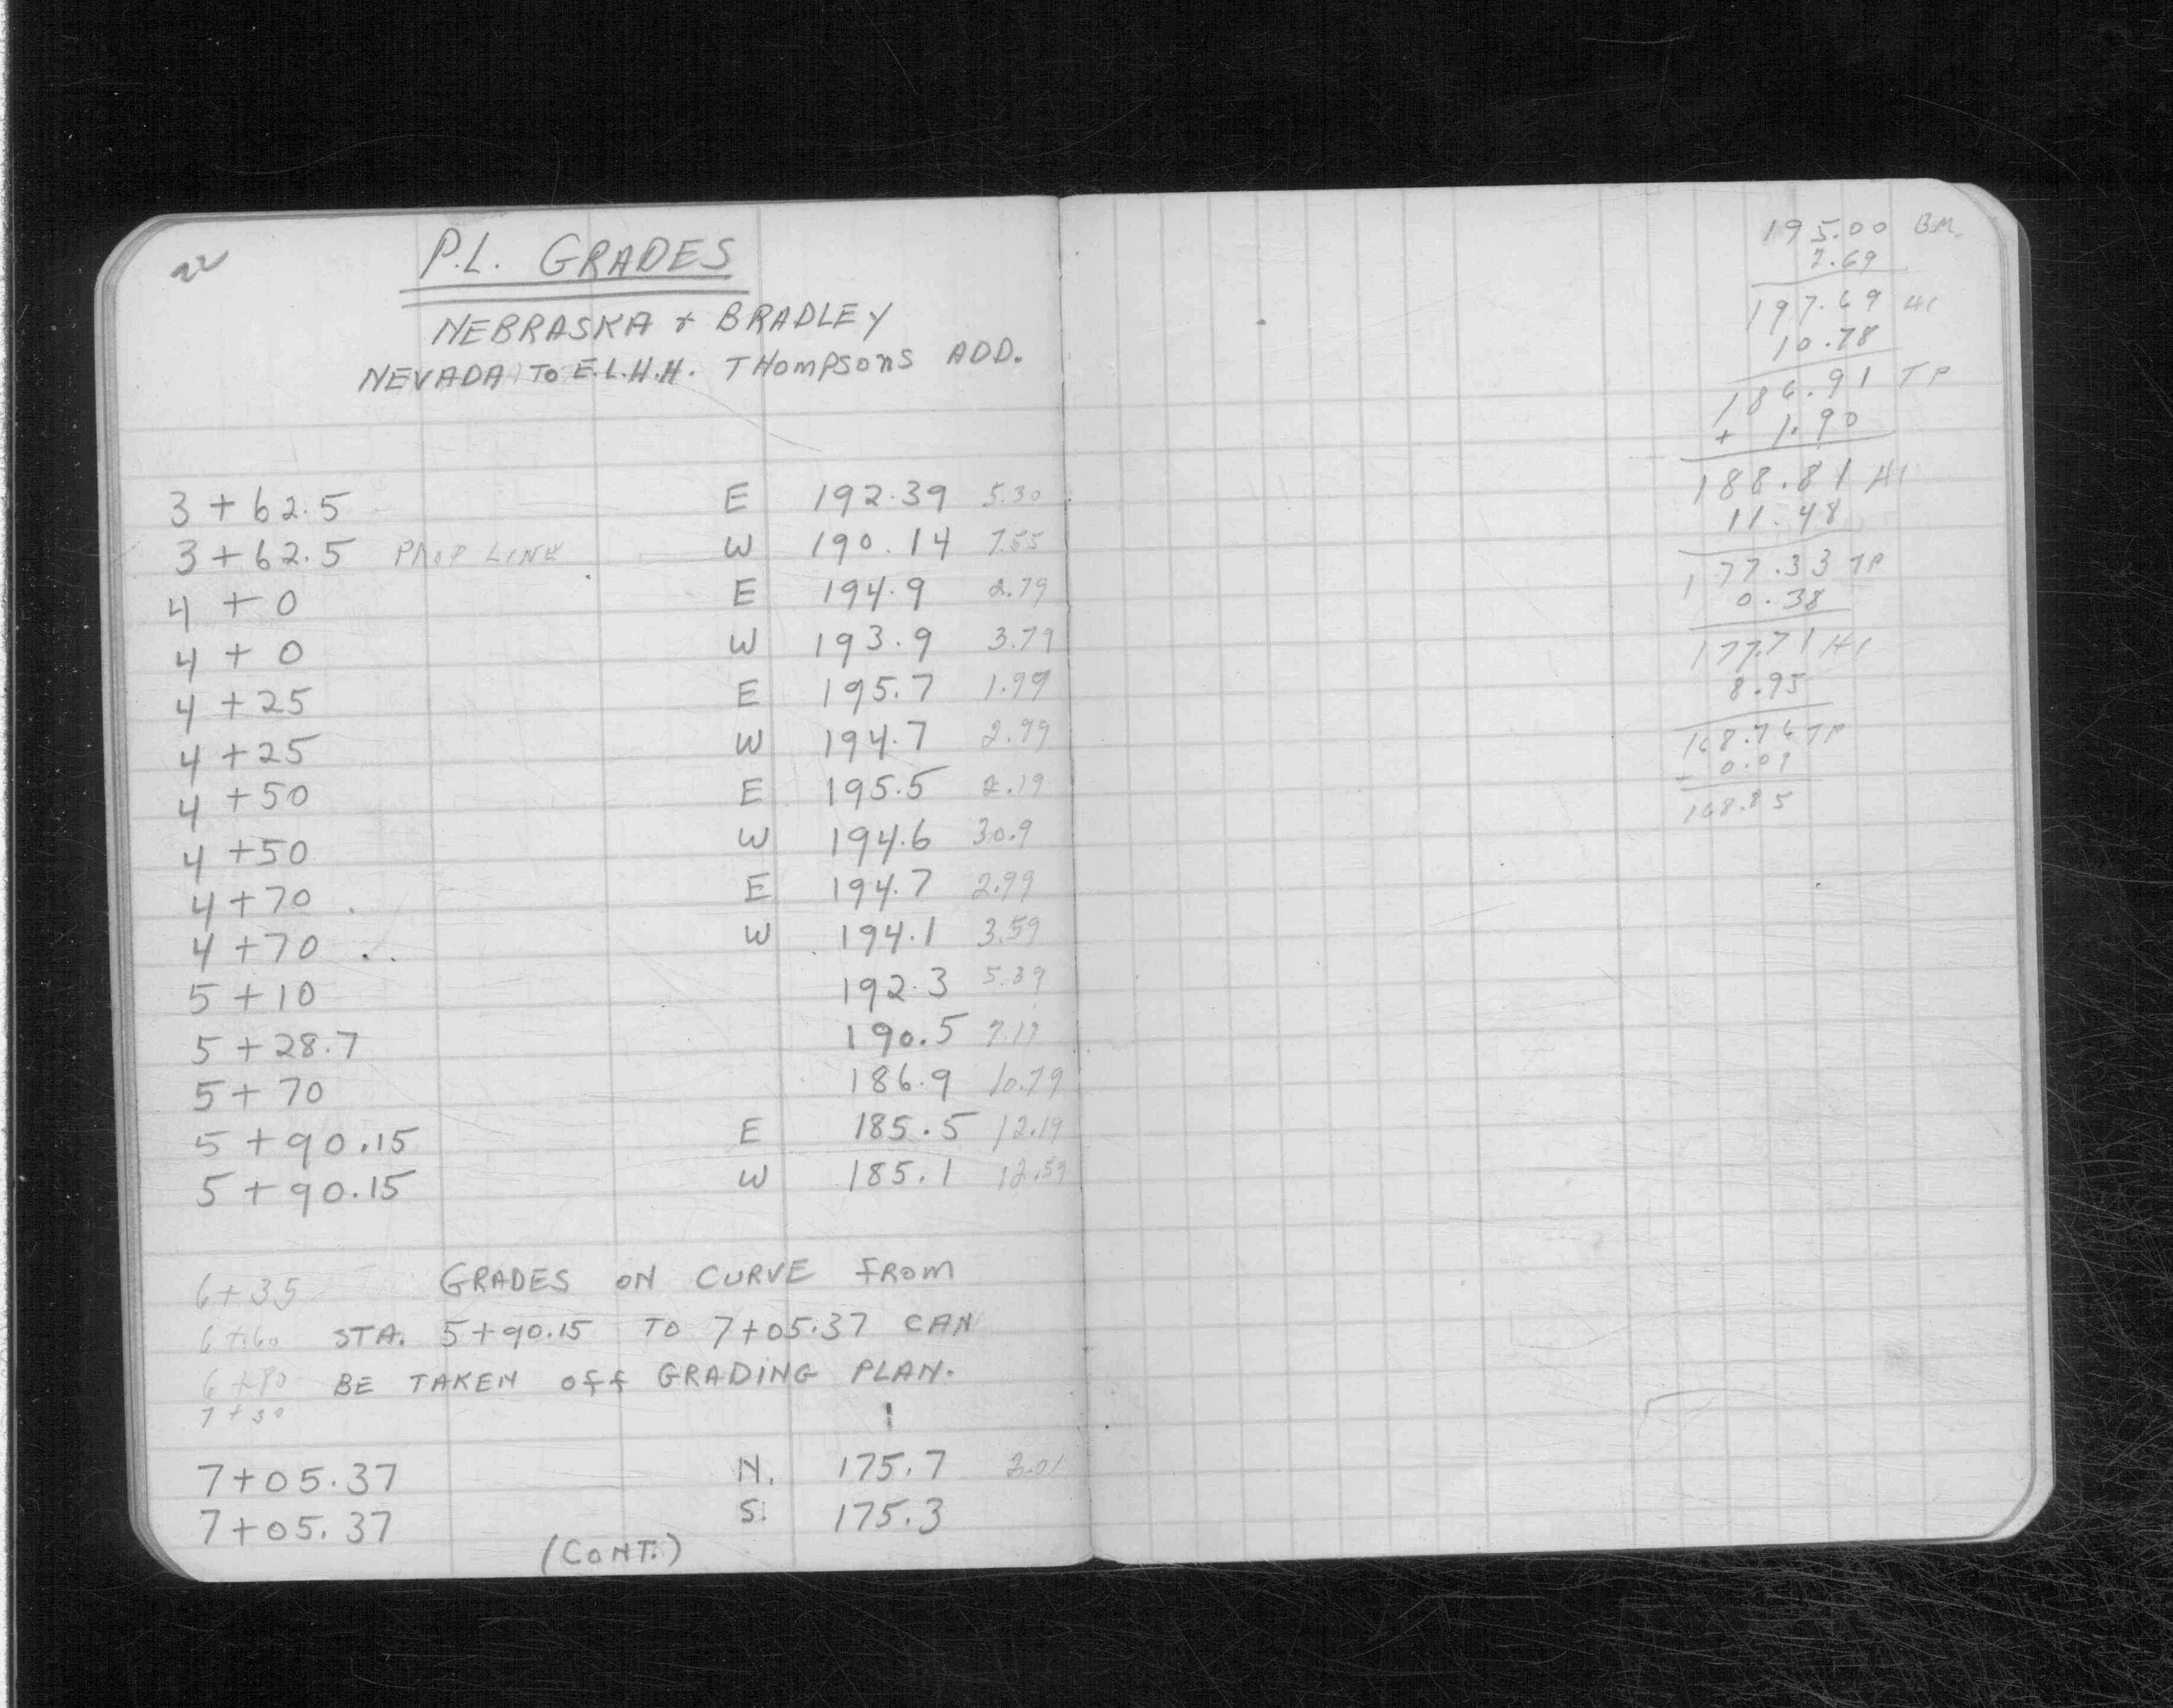 22
P.L. GRADES
NEBRASKA + BRADLEY
NEVADA TO E.L.H.H. THOMPSONS ADD.
3+62.5 E 192.39 5.30
3+62.5 PROP LINE W 190.14 7.55
4+0 E 194.9 2.79
4+0 W 193.9 3.79
4+25 E 195.7 1.99
4+25 W 194.7 2.99
4+50 E 195.5 2.19
4+50 W 194.6 30.9
4+70 E 194.7 2.99
4+70 W 194.1 3.59
5+10 192.3 5.39
5+28.7 190.5 7.19
5+70 186.9 10.79
5+90.15 E 185.5 12.19
5+90.15 W 185.1 12.59
6+35 GRADES ON CURVE FROM
6+60 STA. 5+90.15 TO 7+05.37 CAN
6+80 BE TAKEN OFF GRADING PLAN.
7+30
7+05.37 N. 175.7 2.01
7+05.37 S. 175.3
(CONT.)
195.00 BM.
2.69
197.69 HI
10.78
186.91 TP
+ 1.90
188.81 HI
11.48
177.33 TP
0.38
177.71 HI
8.95
168.76 TP
+ 0.09
168.85